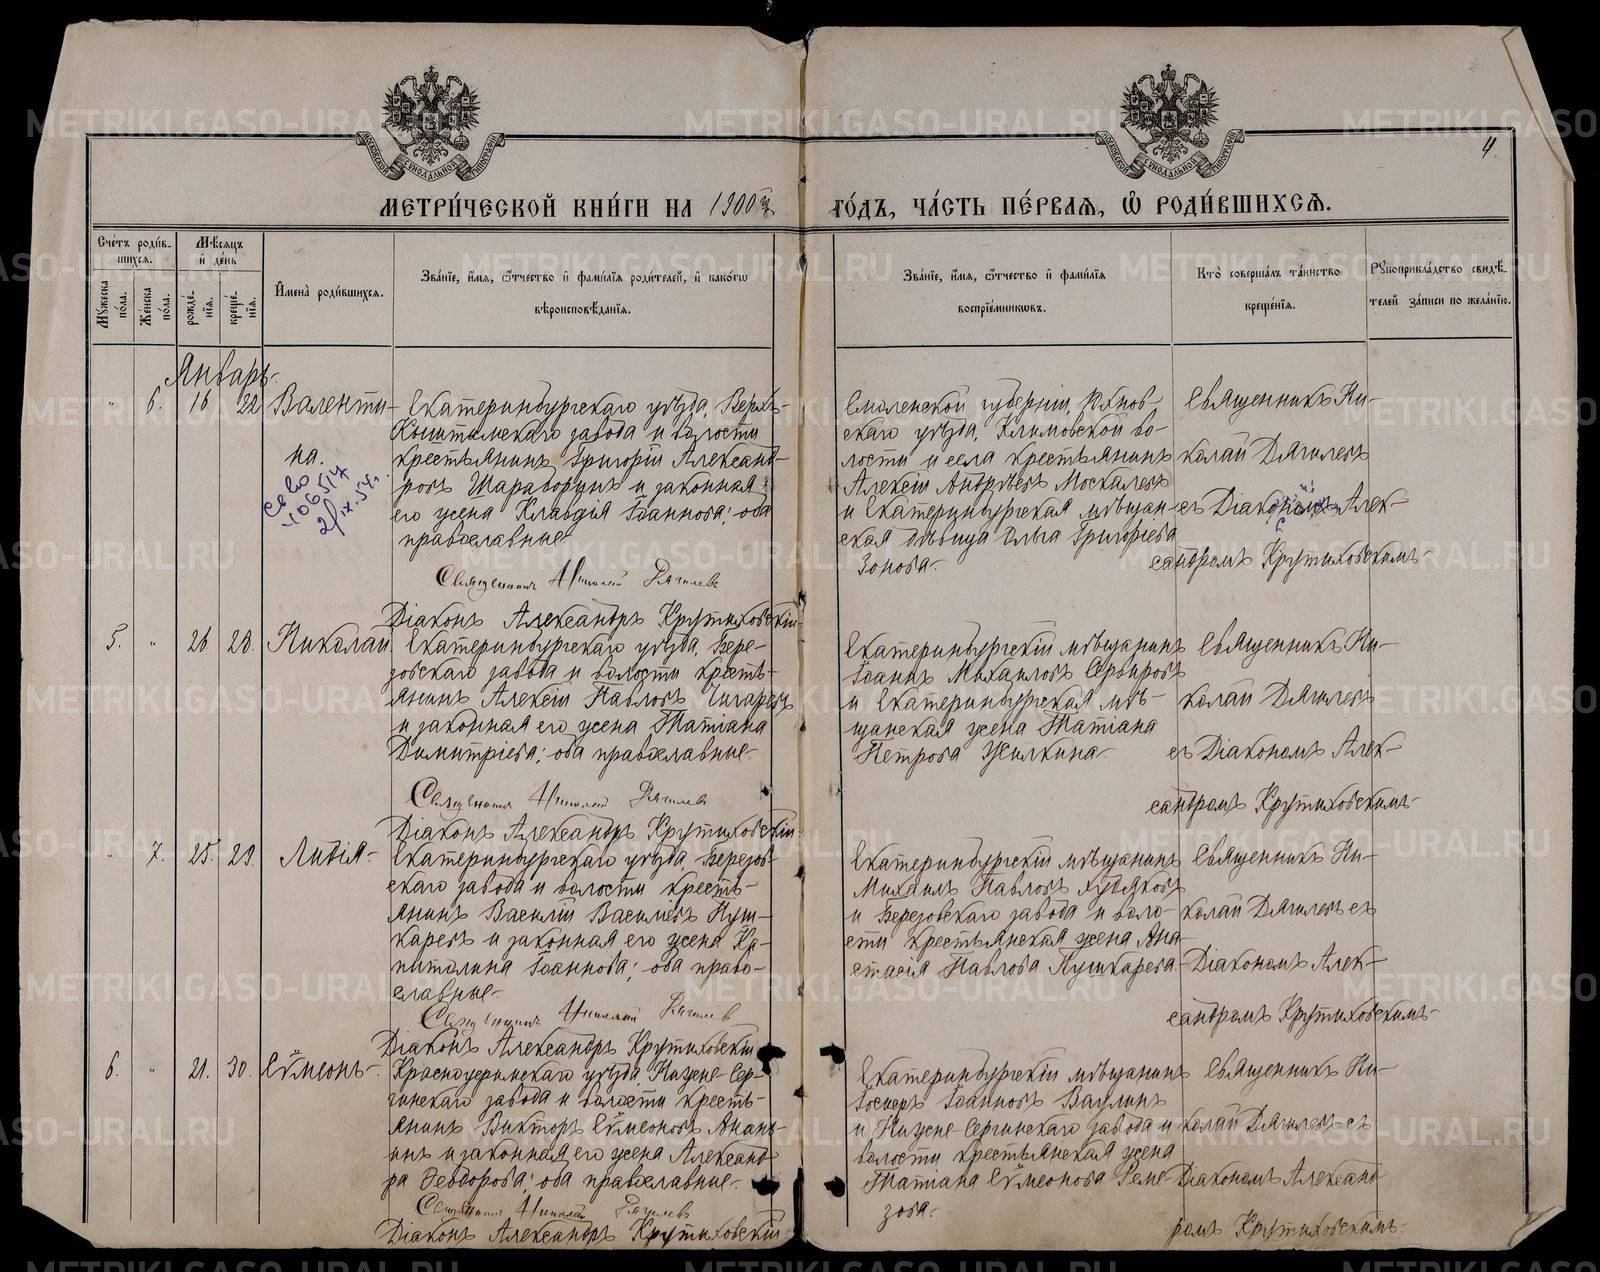 МЕТРИ́ЧЕСКОЙ КНИ́ГИ НА 1900й
ГО́ДЪ, ЧА́СТЬ ПЕ́РВАѦ, Ѡ РОДИ́ВШИХСѦ.
4.
Сче́тъ роди́в-
шихсѧ.
Мѣ́сѧцъ
и де́нь
Мꙋ́жеска по́ла.
Же́нска по́ла.
рожде́-
нїѧ.
креще́-
нїѧ.
И́мена̀ роди́вшихсѧ.
Зва́нїе, и́мѧ, ѻ́тчество и фами́лїѧ роди́телей, и како́гѡ
вѣроисповѣ́данїѧ.
Зва́нїе, и́мѧ, ѻ́тчество и фами́лїѧ
воспрїе́мникѡвъ.
Кто̀ соверша́лъ та́инство
креще́нїѧ.
Рꙋкоприкла́дство свидѣ́-
телей за́писи по жела́нїю.
Январь.
" 6. 16 22 Валенти-
на.
Св во
406514
2/IX.54г.
Екатеринбургскаго уѣзда, Верхъ-
Кыштымскаго завода и волости
крестьянинъ Григорій Александ-
ровъ Шараворунъ и законная
его жена Клавдія Іоаннова; оба
православные.
Священникъ Николай Дягилевъ
Діаконъ Александръ Крутиховскій.
Смоленской губерніи,
скаго уѣзда, Климовской во-
лости и села крестьянинъ
Алексій Андрѣевъ Москалевъ
и Екатеринбургская мѣщан-
ская дѣвица Ольга Григоріева
Зонова.
Священникъ Ни-
колай Дягилевъ
съ Діакономъ Алек-
сандромъ Крутиховскимъ.
5. " 26 28. Николай
Екатеринбургскаго уѣзда, Бере-
зовскаго завода и волости кресть-
янинъ Алексій Павловъ
и законная его жена Татіана
Димитріева; оба православные.
Священникъ Николай Дягилевъ
Діаконъ Александръ Крутиховскій.
Екатеринбургскій мѣщанинъ
Іоаннъ Михаиловъ
и Екатеринбургская мѣ-
щанская жена Татіана
Петрова Жилкина.
Священникъ Ни-
колай Дягилевъ
съ Діакономъ Алек-
сандромъ Крутиховскимъ.
" 7. 25. 29. Лидія.
Екатеринбургскаго уѣзда, Березов-
скаго завода и волости кресть-
янинъ Василій Васильевъ Пуш-
каревъ и законная его жена Ка-
питолина Іоаннова; оба право-
славные.
Священникъ Николай Дягилевъ
Діаконъ Александръ Крутиховскій
Екатеринбургскій мѣщанинъ
Михаилъ Павловъ Худяковъ
и Березовскаго завода и воло-
сти крестьянская жена Ана-
стасія Павлова Пушкарева.
Священникъ Ни-
колай Дягилевъ съ
Діакономъ Алек-
сандромъ Крутиховскимъ.
6. " 21. 30. Сѵмеонъ.
Красноуфимскаго уѣзда, Нижне-Сер-
гинскаго завода и волости кресть-
янинъ Викторъ Сѵмеоновъ Анань-
инъ и законная его жена Александ-
ра Ѳеодорова; оба православные.
Священникъ Николай Дягилевъ
Діаконъ Александръ Крутиховскій.
Екатеринбургскій мѣщанинъ
Іосифъ Іоанновъ Ваулинъ
и Нижне-Сергинскаго завода и
волости крестьянская жена
Татіана Сѵмеонова Реме-
зова.
Священникъ Ни-
колай Дягилевъ съ
Діакономъ Александ-
ромъ Крутиховскимъ.